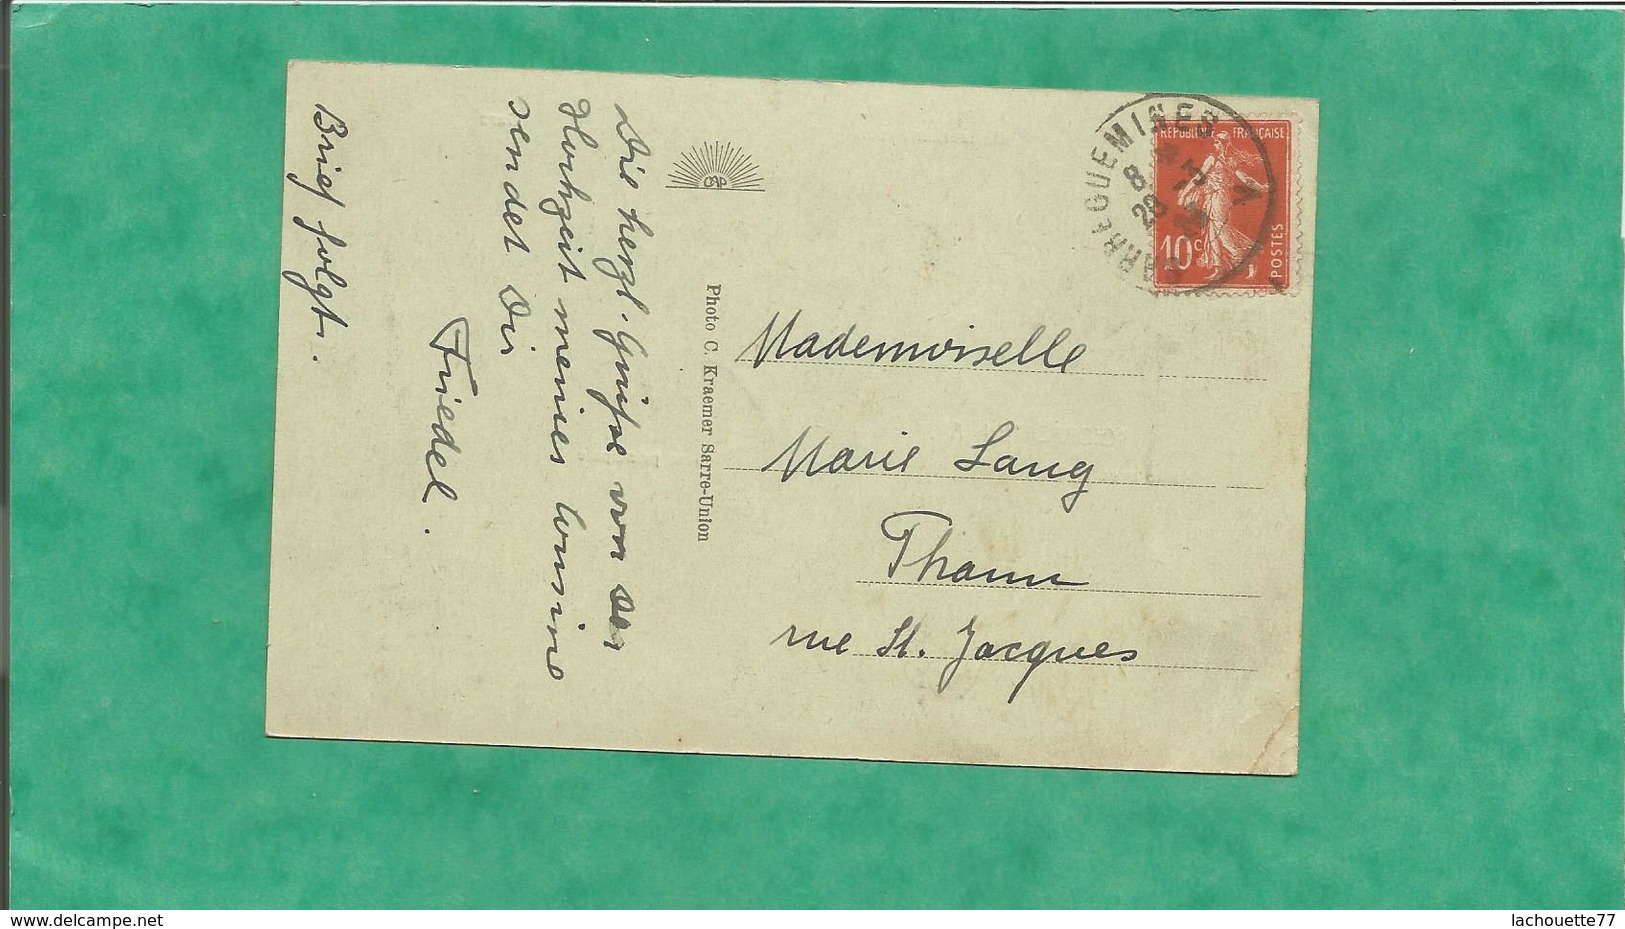 Die herzl. Grüße von der
Hochzeit meiner Cousine
sendet Dir
Friedel.
Brief folgt.
CAP
Photo C. Kraemer Sarre-Union
SARREGUEMINES
8
28 -3
RÉPUBLIQUE FRANÇAISE
10c
POSTES
Mademoiselle
Marie Lang
Thann
rue St. Jacques
www.delcampe.net
lachouette77